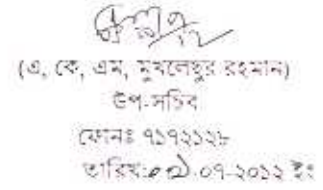 (এ, কে, এম, মুখলেছুর রহমান)
উপ-সচিব
ফোনঃ ৭১৭২১২৮
তারিখ: -০৭-২০১২ ইং